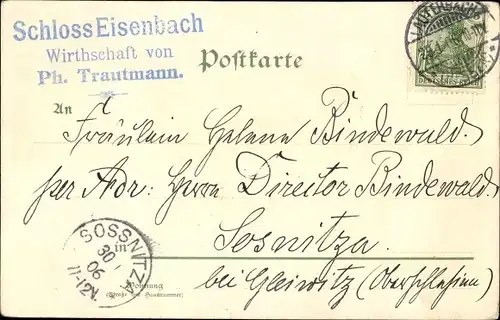 Schloss Eisenbach
Wirthschaft von
Ph. Trautmann.
Postkarte
LAUTERBACH
An
Fräulein Helene Bindewald.
per Adr: Herrn Director Bindewald.
SOSSNITZA
30
06
11-12V.
in Sosnitza.
Wohnung
(Straße und Hausnummer)
bei Gleiwitz (Oberschlesien)